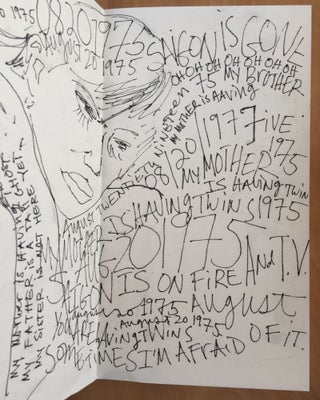 0 1975 08201975
AUGUST 20 1975
SAIGON IS GONE
OH OH OH OH OH OH OH
NiNETEEN 75 MY BROTHER
MY MOTHER IS HAVING
1975 FIVE
08/20/1975
MY MOTHER
IS HAVING TWINS
August TWENTIETH
IS HAVING TWINS 1975
MY MOTHER
AUG 20 1975
SAIGON IS ON FIRE And T.V.
August 20 1975 AUGUST
YOU ARE HAVING TWINS
August 20 1975
SOMETIMES I'M AFRAID OF IT.
MY MOTHER IS HAVING
MY FATHER IS NOT THERE
MY SISTER IS NOT
YET